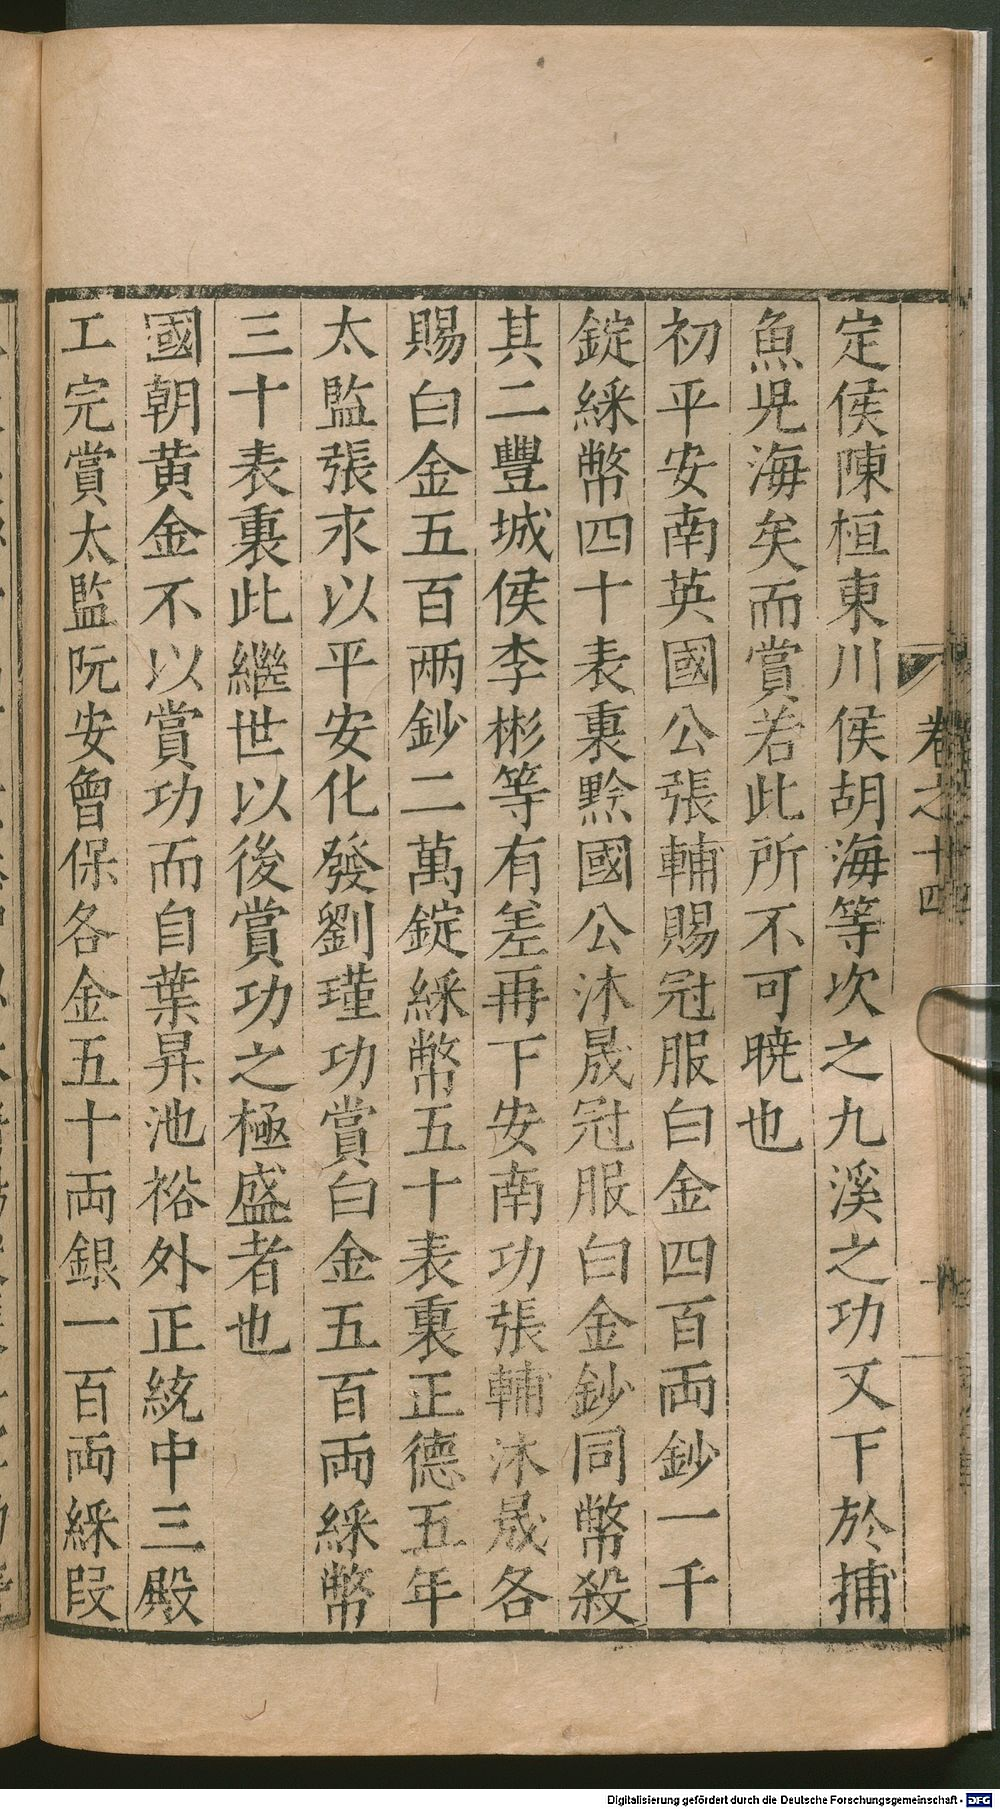 卷之十四
定侯陳桓東川侯胡海等次之九溪之功又下於捕
魚児海矣而賞若此所不可曉也
初平安南英國公張輔賜冠服白金四百両鈔一千
錠綵幣四十表裏黔國公沐晟冠服白金鈔同幣殺
其二豐城侯李彬等有差再下安南功張輔沐晟各
賜白金五百兩鈔二萬錠綵幣五十表裏正德五年
太監張永以平安化發劉瑾功賞白金五百両綵幣
三十表裏此繼世以後賞功之極盛者也
國朝黄金不以賞功而自葉昇池裕外正統中三殿
工完賞太監阮安會保各金五十両銀一百両綵段
Digitalisierung gefördert durch die Deutsche Forschungsgemeinschaft - DFG